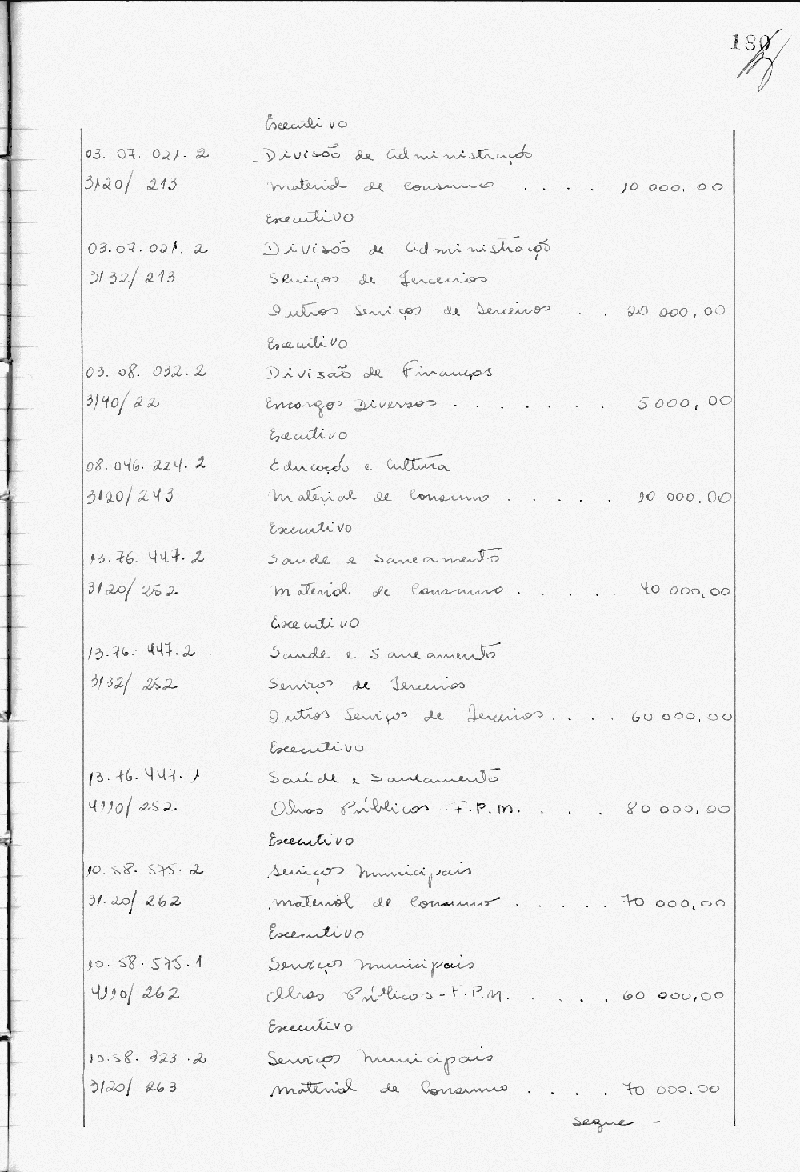 180
Executivo
03. 07. 021. 2 Divisão de Administração
3120/ 213 Material de Consumo . . . . 10 000,00
Executivo
03.07.021.2 Divisão de Administração
3132/ 213 Serviços de Terceiros
Outros Serviços de Terceiros . . 20 000,00
Executivo
03. 08. 032. 2 Divisão de Finanças
3190/ 22 Encargos Diversos . . . . . . . 5 000,00
Executivo
08. 046. 224. 2 Educação e Cultura
3120/ 243 Material de Consumo . . . . . 10 000,00
Executivo
13.76. 447. 2 Saude e Saneamento
3120/ 252 Material de Consumo . . . . . 40 000,00
Executivo
13.76. 447.2 Saude e Saneamento
3132/ 252 Serviços de Terceiros
Outros Serviços de Terceiros . . . . 60 000,00
Executivo
13.76.447.1 Saúde e Saneamento
4110/ 252. Obras Públicas - F.P.M. . . . 80 000,00
Executivo
10.58.575.2 Serviços Municipais
31.20/ 262 Material de Consumo . . . . . 70 000,00
Executivo
10. 58. 575. 1 Serviços Municipais
4110/ 262 Obras Públicas - F.P.M. . . . . 60 000,00
Executivo
10.58. 323.2 Serviços Municipais
3120/ 263 Material de Consumo . . . . 70 000.00
segue -